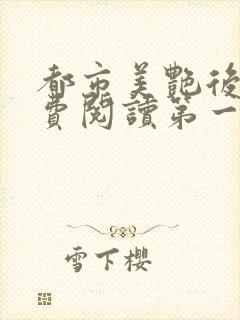 都市美艷後
費閱讀第一
雪下櫻